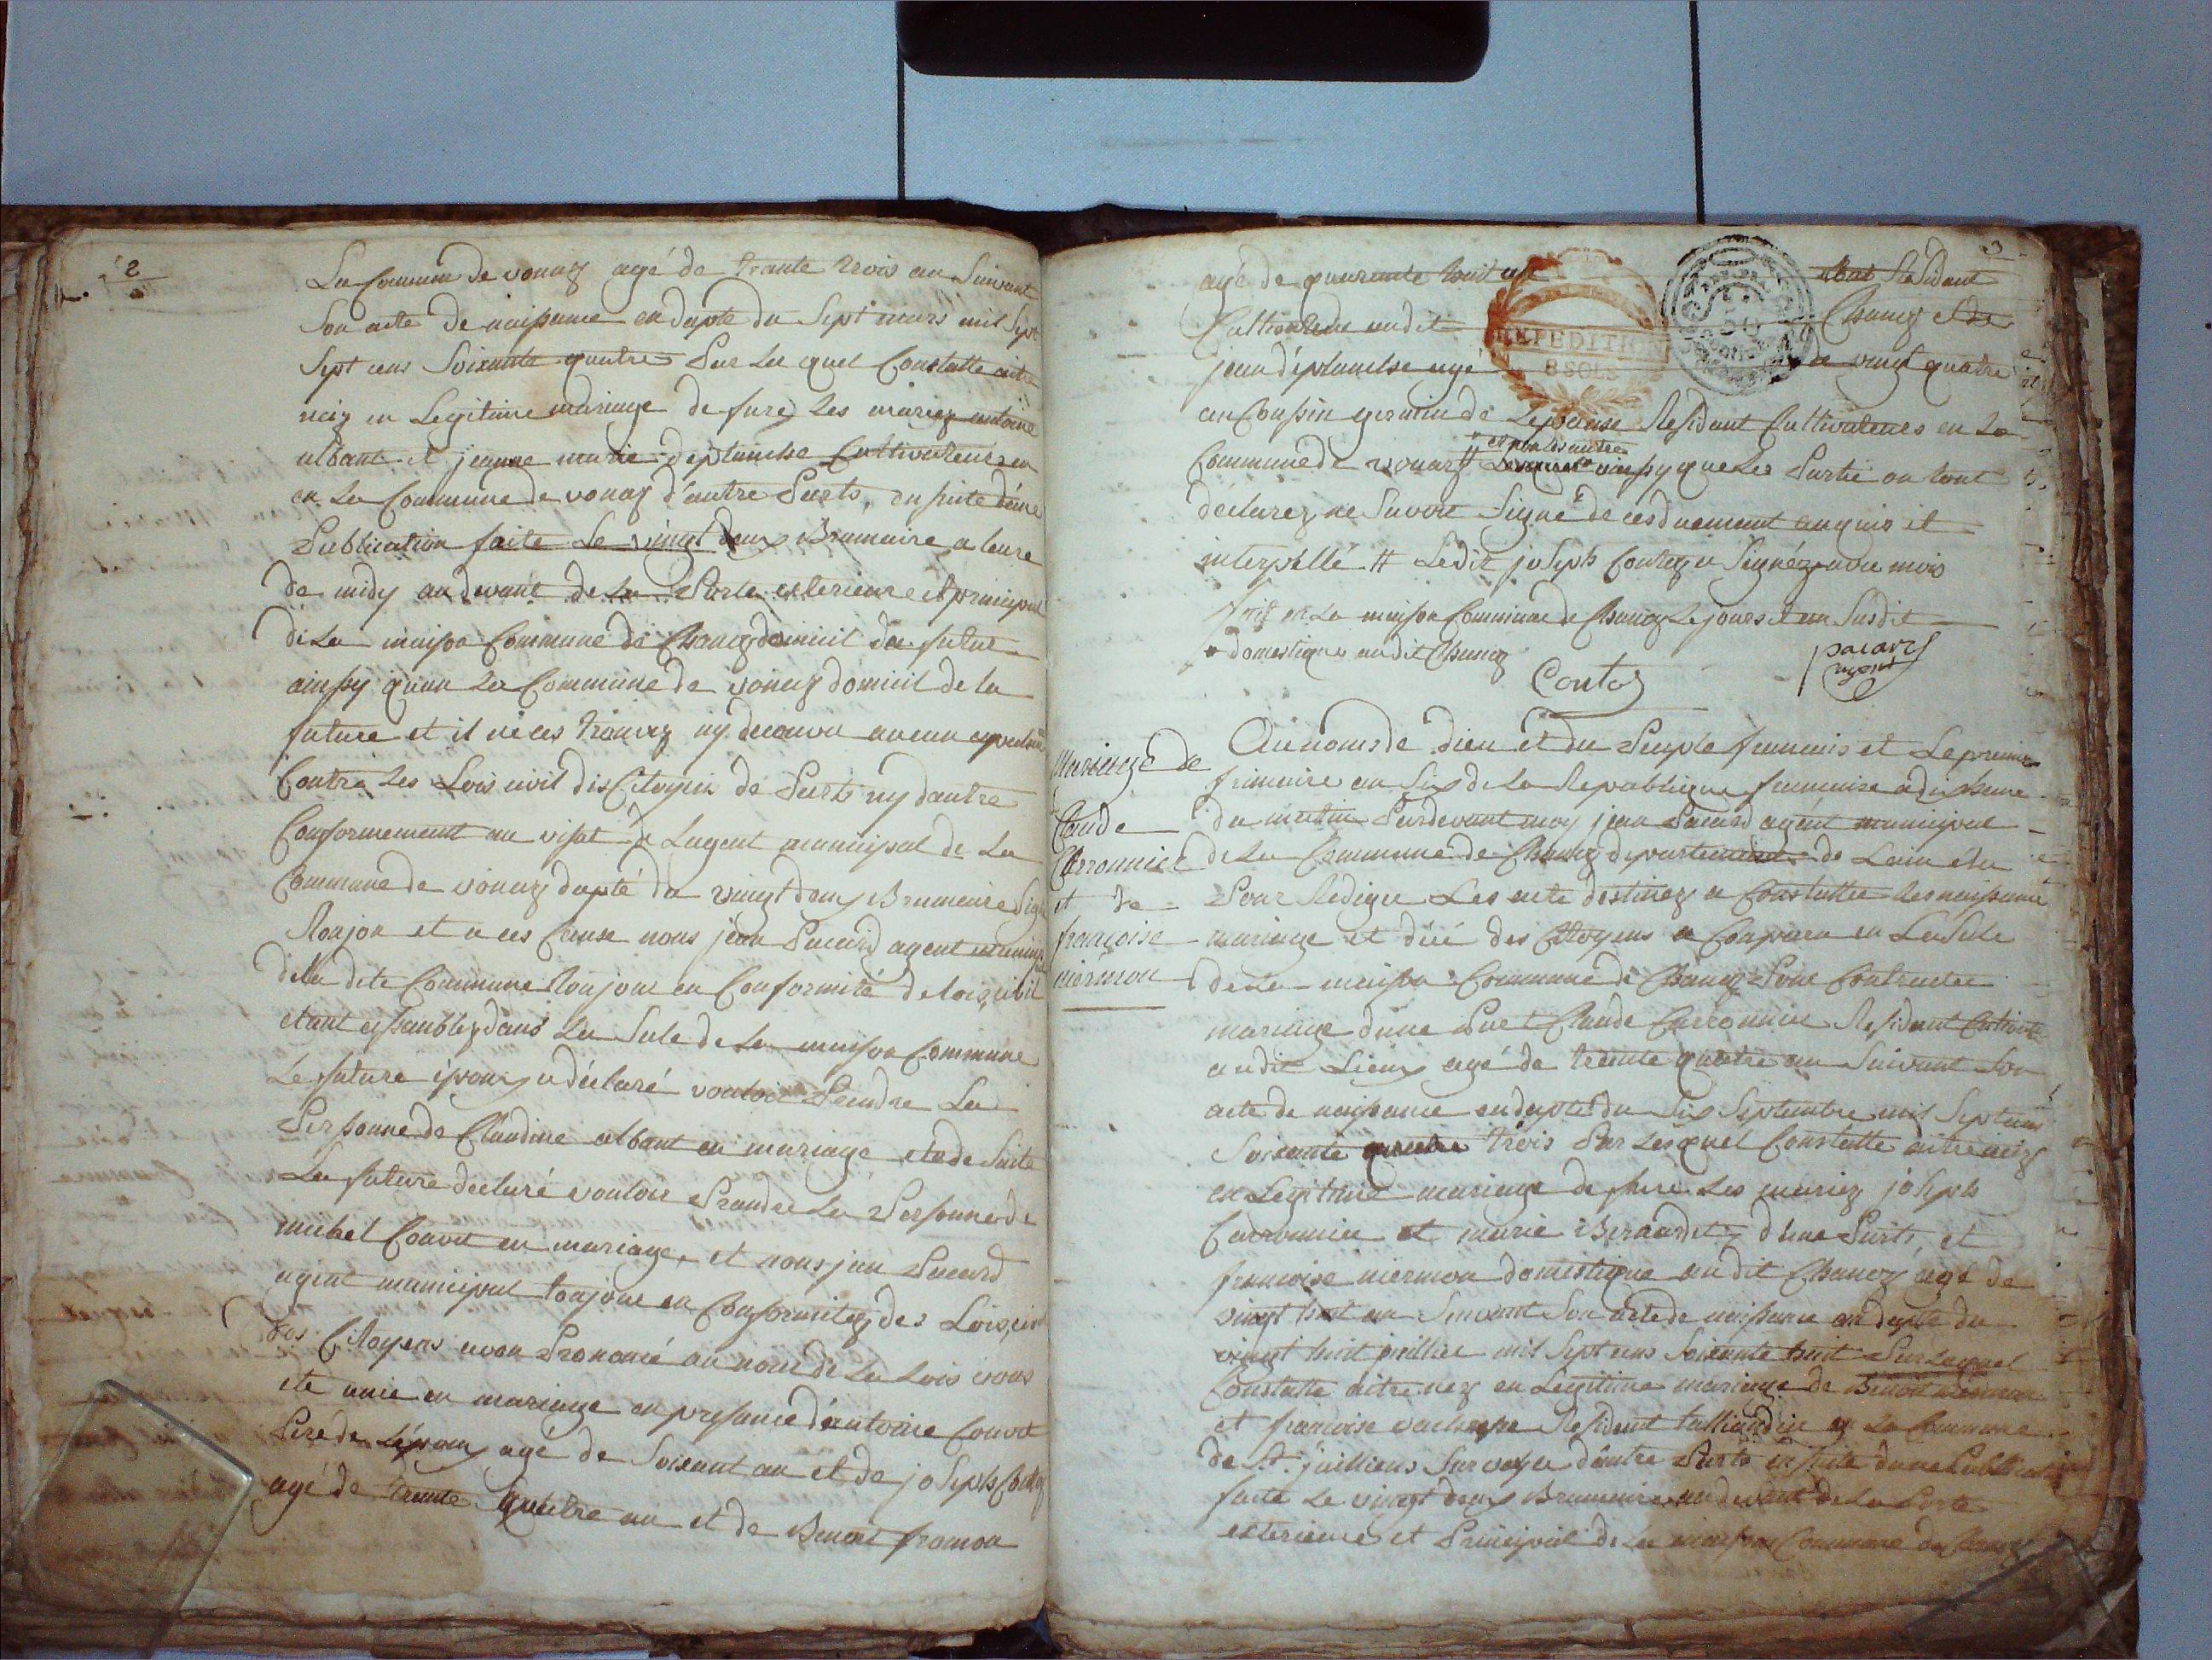 2
La Commune de vonnaz agé de trante trois an Suivant
Son acte de naissance en dapte du Sept mars mil Sept
Sept cens Soixante quatre Par Le quel Constatte aitre
neiz en Legitime mariage de fure Les mariez antoine
albant et jeanne marie deplanche Cultivateurs en
en La Commune de vonaz d'autre Parts, en suite d'une
Publication faite Le vingt deux Brumaire a leure
de midy au devant de La Porte exterieure et principal
de La maison Commune de Chanoz domicil du futur
ainssy quan La Commune de vonaz domicil de la
future et il ne ces trouvez ny decouvu aucun
Contre Les Lois civil des Citoyens de Parts ny dautre
Conformement au visat de Lagent municipal de La
Commune de vonaz dapté du vingt deux Brumaire Signé
Roujon et a ces Cause nous jean Pacard agent municipal
de la dite Commune toujour en Conformité de lois civil
etant assamblez dans La Sale de La maison Commune
Le future epoux a déclaré vouloir Prendre La
Personne de Claudine albant en mariage et de Suite
La future declaré vouloir Prandre La Personne de
michel Convert en mariage, et nous jean Pacard
agent municipal toujour en Conformitez des Lois civil
des Citoyens avon Prononcé au nom de La Lois vous
ete unie en mariage en presance d'antoine Convert
Pere de Lépoux agé de Soixant an et de joseph
agé de trante quatre an et de Benoit fromon
3
agé de quarante huit an Résidant
Cultivateur audit Chanoz et de
jean déplanche agé de vingt quatre
EXPEDITION
8 SOLS
an Coussin germain de Lepouse Residant Cultivateurs en La
Commune de vonaz ainssy que Les Partie on tout
déclarez ne Savoir Signé de ces duement enquis et
interpellé # Ledit joseph a Signéz avec mois
fait en La maison Commune de Chanoz Le jours et an Susdit
domestique audit Chanoz
pacard
agent
Mariage de
Claude
Carronnier
et de
françoise
niermon
Au noms de Dieu et du Peuple francais et Le premier
frimaire an Six de La Republique francaise a dix heure
du matin Pardevant moy jean Pacard agent municipal
de La Commune de Chanoz departement de Lain élu
Pour Rediger Les acte destinez a Constatter Les naissance
mariage et décé des Citoyens a Comparu en La Sale
de La maison Commune de Chanoz Pour Contracter
mariage d'une Part Claude Carronnier Residant
audit Lieux agé de trente quatre an Suivant Son
acte de naissance en dapte du Six Septembre mil Septcens
Soixante trois Par Lesquel Constatte aitre neiz
en Legitime mariage de fure Les mariez joseph
Carronnier et marie Bernardet d'une Parts, et
francoise niermon domestique audit Chanoz agé de
vingt huit an Suivant Son acte de naissance en dapte du
vingt huit juillier mil Sept cens Soixante huit Par Laquel
Constatte aitre nez en Legitime mariage de Benoit niermon
et francoise Residant en La Commune
de St. juilliens Sur veyle d'autre Parts en suite d'une Publication
faite Le vingt deux Brumaire au devant de La Porte
exterieure et Principal de La maison Commune du Chanoz